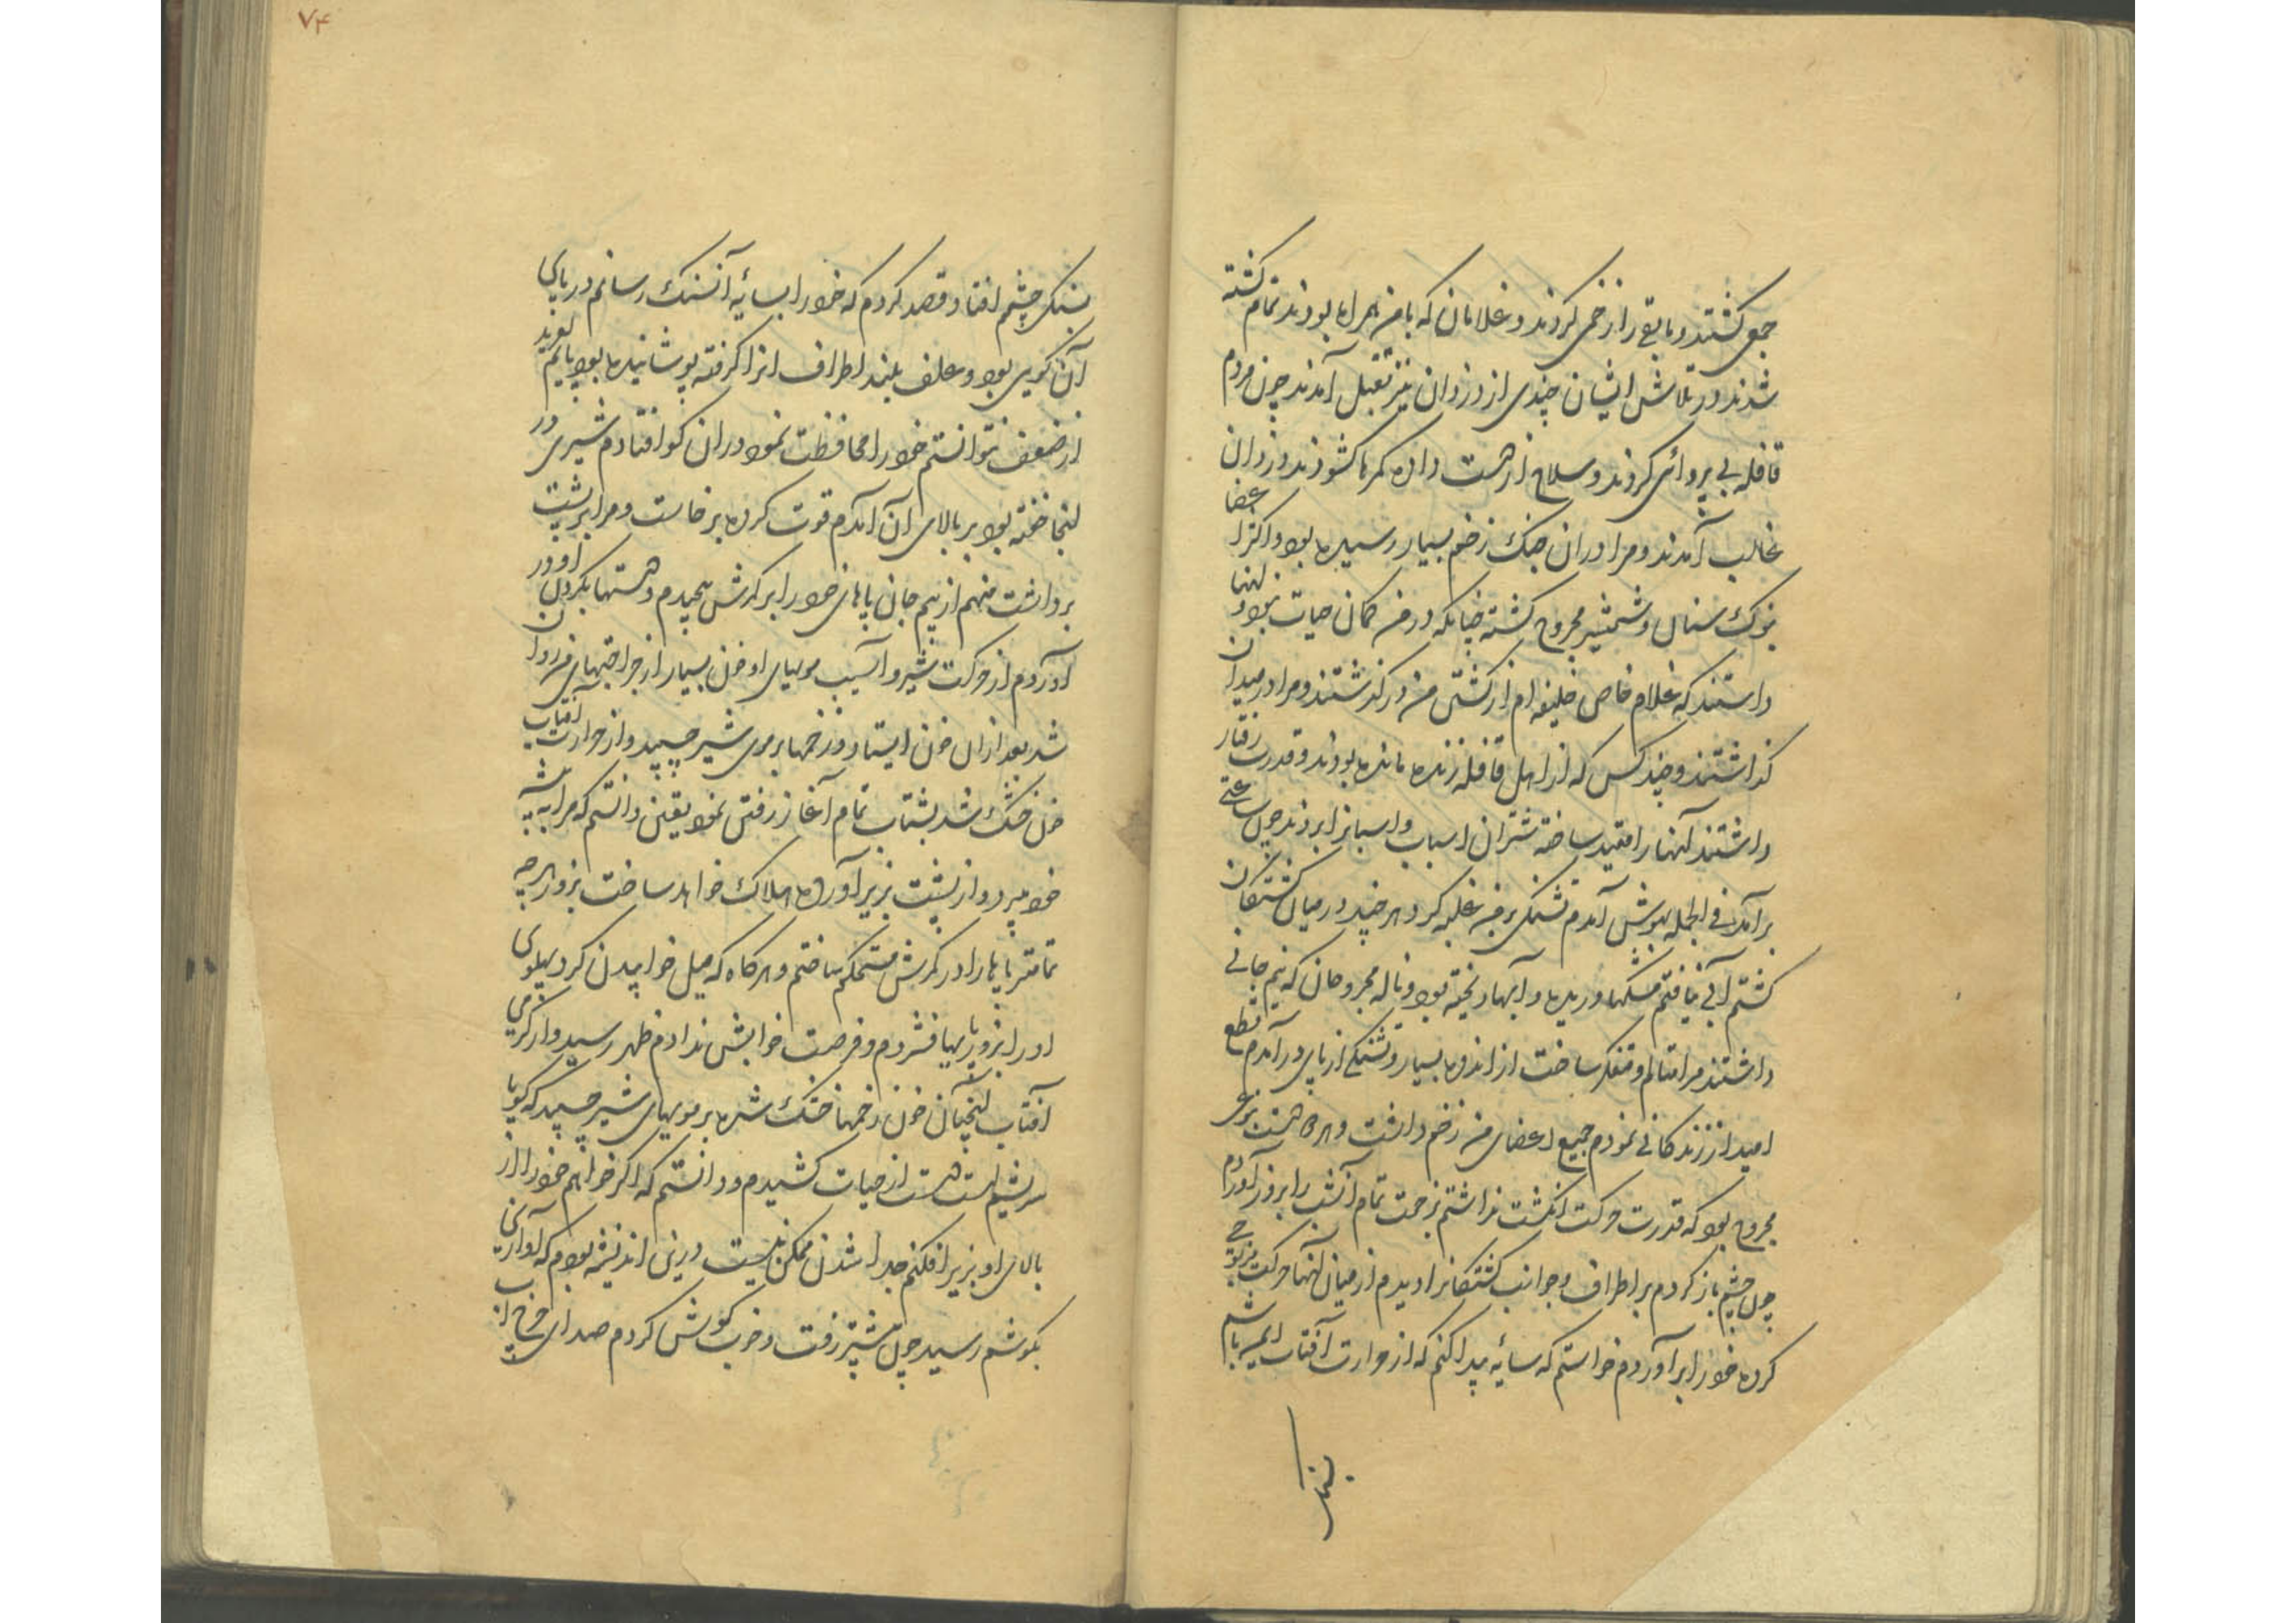 جمعی کشتند و مابقی را زخمی کردند و غلامان که با من همراه بودند تمام کشته
شدند در تلاش ایشان چندی از دزدان نیز بقتل آمدند چون مردم
قافله بی پروائی کردند و سلاح از دست داده کمرها کشودند دزدان
غالب آمدند و مرا در ان جنک زخم بسیار رسیده بود و اکثر اعضا
بنوک سنان و شمشیر مجروح کشته چنانکه در من کمان حیات نبود
دانستند که غلام خاص خلیفه ام از کشتن من درکذشتند و مرا در میدان
کذاشتند و چند کس که از اهل قافله زنده مانده بودند و قدرت رفتار
داشتند آنها را مقید ساخته شتران اسباب و اسبانرا بردند چون ساعتی
برآمد فی الجمله بهوش آمدم تشنکی بر من غلبه کرد هر چند در میان کشتکان
کشتم آبی نیافتم مشکها دریده و آبها ریخته بود و ناله مجروحان که نیم جانی
داشتند مرا متالم و متفکر ساخت از اندوه بسیار و تشنکی از پای در آمدم قطع
امید از زندکانی نمودم جمیع اعضای من زخم داشت و هر دو دست بنوعی
مجروح بود که قدرت حرکت انکشت نداشتم بزحمت تمام آنشب را بروز آوردم
چون چشم باز کردم بر اطراف و جوانب کشتکانرا دیدم از میان آنها حرکت مذبوحی
کرده خود را برآوردم خواستم که سائه پیدا کنم که از حرارت آفتاب ایمن باشم
بسنک
۷۴
بسنک چشم افتاد قصد کردم که خود را بسائه آنسنک رسانم در پای
آن کوی بود و علف بلند اطراف انرا کرفته پوشانیده بود پایم لغزید
از ضعف نتوانستم خود را محافظت نمود در ان کو افتادم شیری در
انجا خفته بود بر بالای آن آمدم قوت کرده برخاست و مرا بر پشت
برداشت منهم از بیم جان پاهای خود را بر کمرش پیچیدم و دستها بکردن او در
آوردم از حرکت شیر و آسیب مویهای او خون بسیار از جراحتهای من روان
شد بعد از ان خون ایستاد و زخمها بر موی شیر چسپید و از حرارت آفتاب
خون خشک شد بشتاب تمام آغاز رفتن نمود یقین دانستم که مرا به بیشه
خود میبرد و از پشت بزیر آورده هلاک خواهد ساخت بزور هر چه
تمامتر پاها را در کمرش مستحکم ساختم و هر کاه که میل خوابیدن کرد پهلوی
او را بزور پایها فشردم و فرصت خوابش ندادم ظهر رسید و از کرمی
آفتاب آنچنان خون زخمها خشک شده بر مویهای شیر چسپید که کویا
سریشم است دست از حیات کشیدم و دانستم که اکر خواهم خود را از
بالای او بزیر افکنم جدا شدن ممکن نیست درین اندیشه بودم که آوازی
بکوشم رسید چون پیشتر رفت و خوب کوش کردم صدای چرخ آب